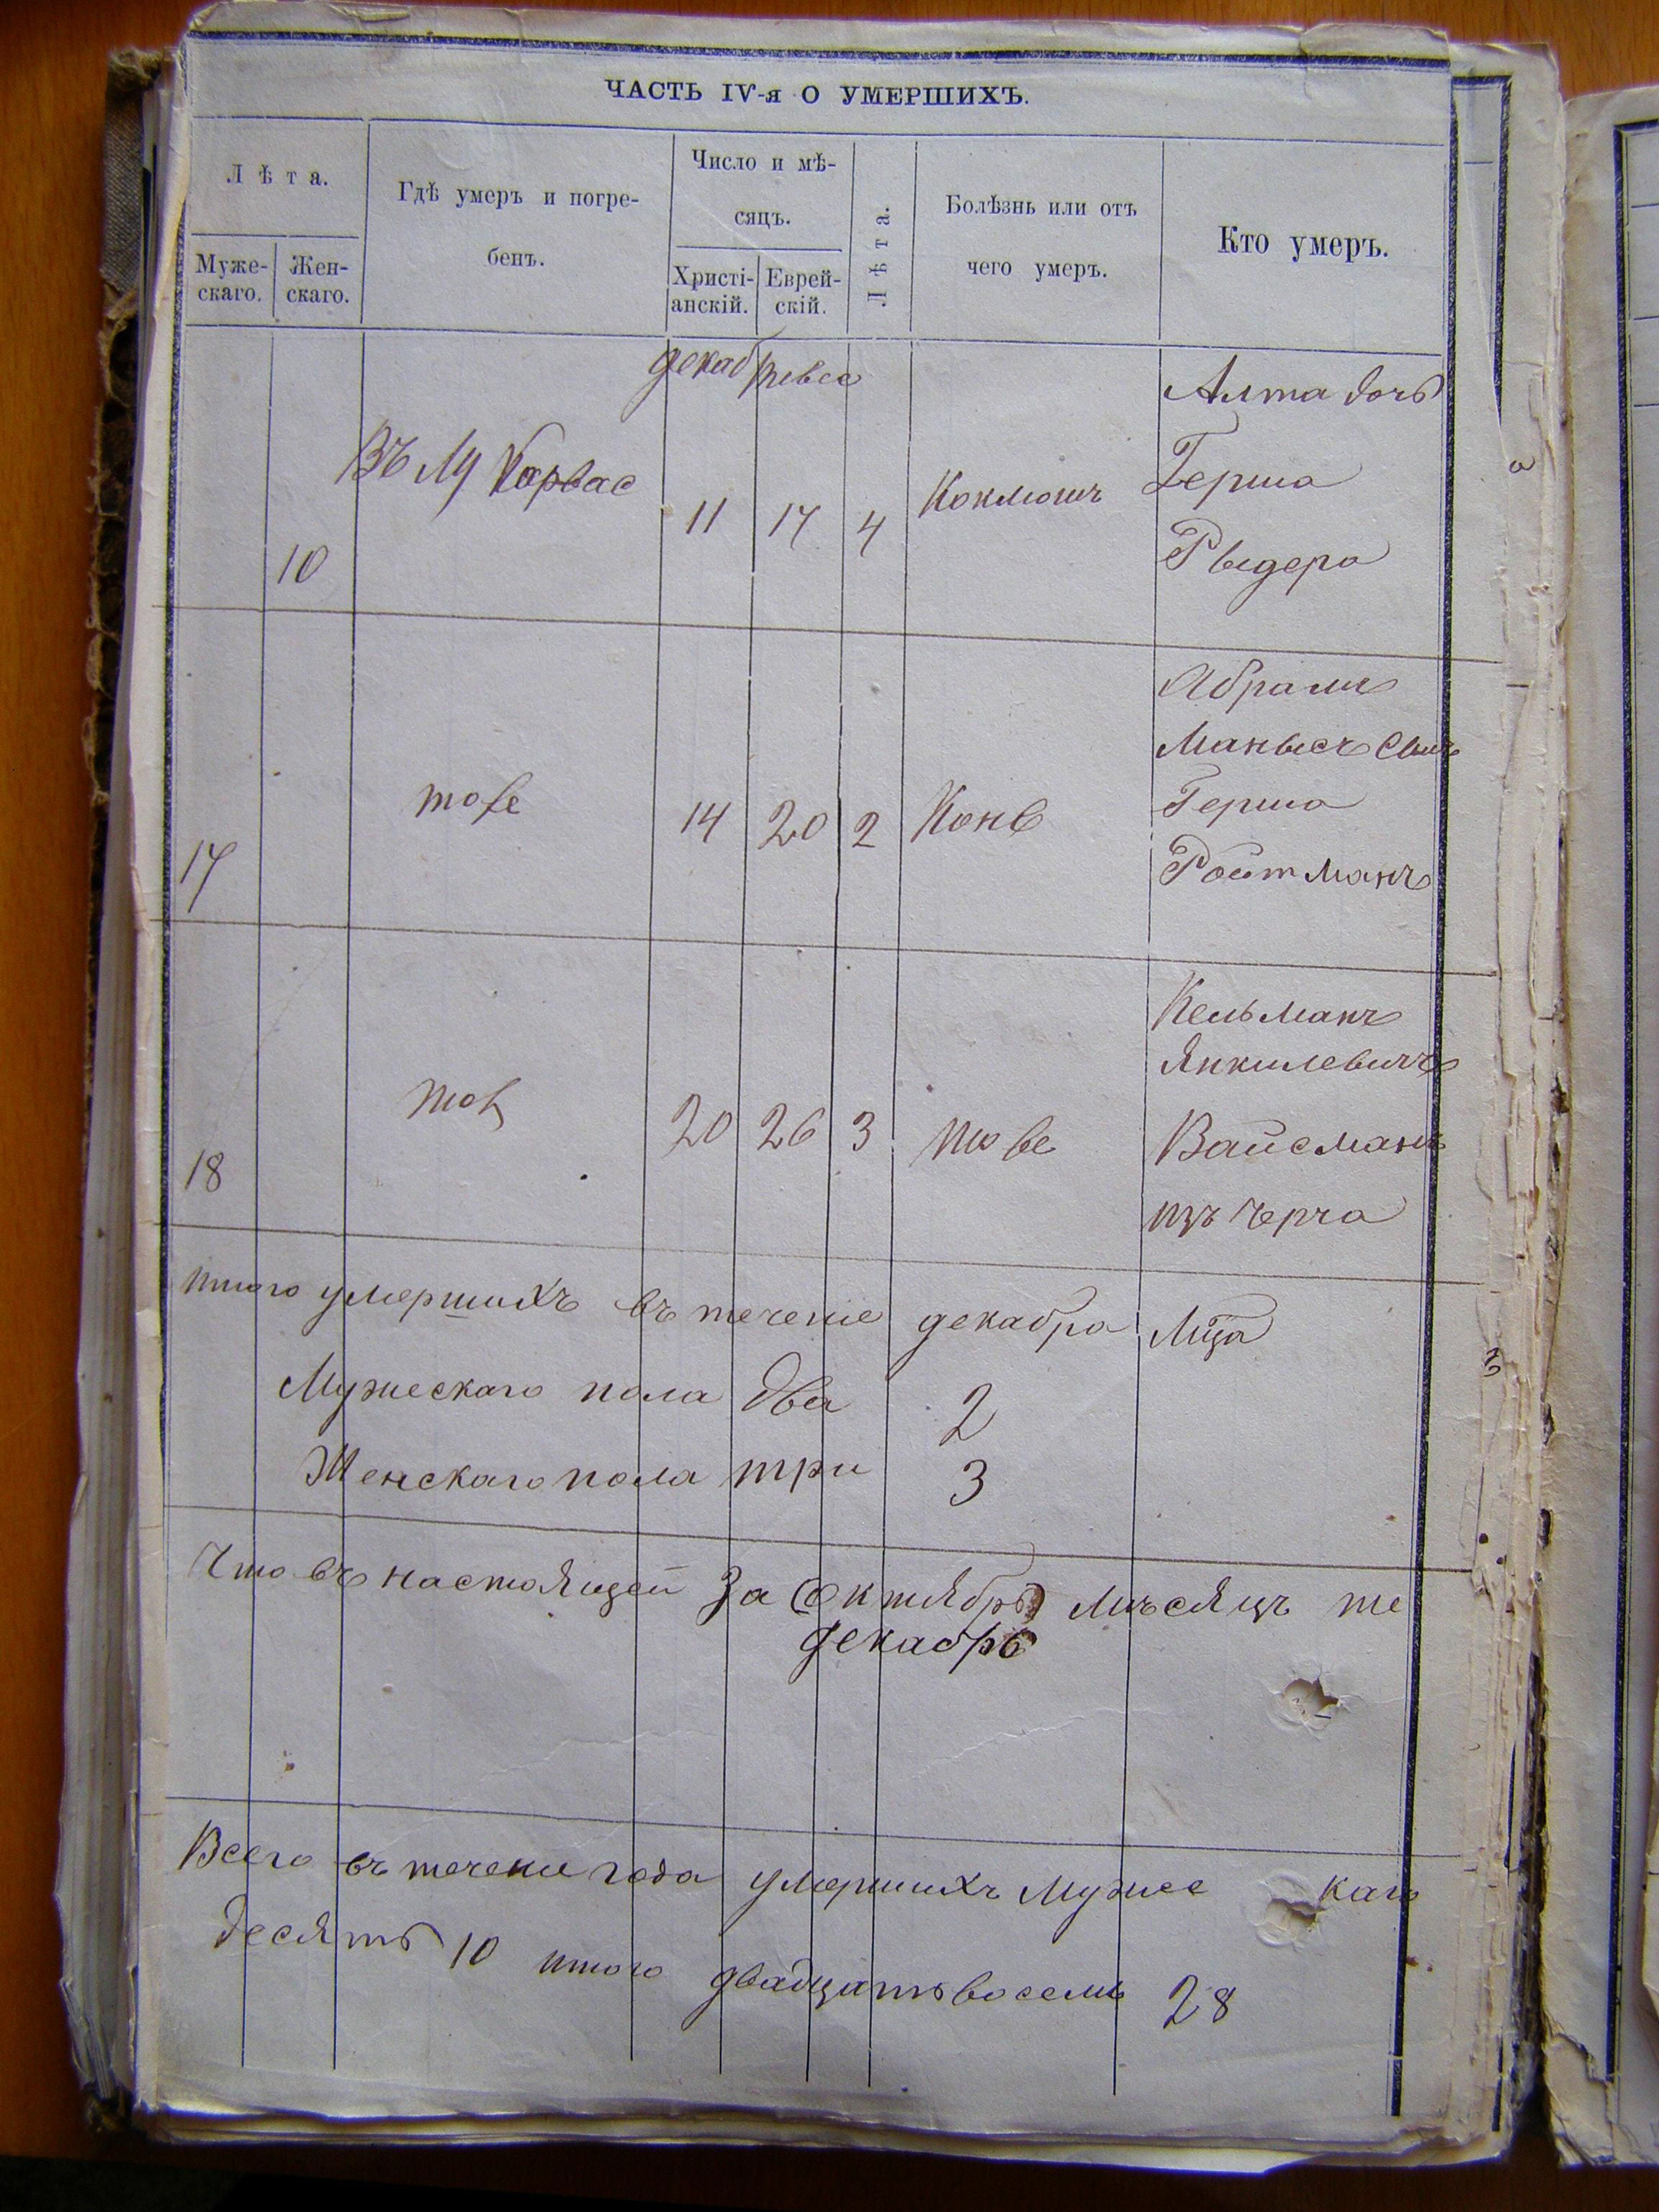 ЧАСТЬ IV-я О УМЕРШИХЪ.
Лѣта.
Мужескаго.
Женскаго.
Гдѣ умеръ и погре-
бенъ.
Число и мѣ-
сяцъ.
Христі-
анскій.
Еврей-
скій.
Лѣта.
Болѣзнь или отъ
чего умеръ.
Кто умеръ.
декаб тевес
10
Въ
11 17 4
Коклюшъ
Алта дочь
Герша
Рыдера
17
тоже
14 20 2
Абрамъ
Маньысъ сынъ
Герша
Ройтманъ
18
тож
20 26 3
тоже
Кельманъ
Янкилевичъ
Вайсманъ
изъ Черча
Итого умершихъ въ теченіе декабра Мца
Мужескаго пола два 2
Женскаго пола три 3
Что въ настоящей За (октябрь) мъсяцъ
декабрь
Всего въ течение года умершихъ мужес каго
десять 10 итого двадцать восемь 28